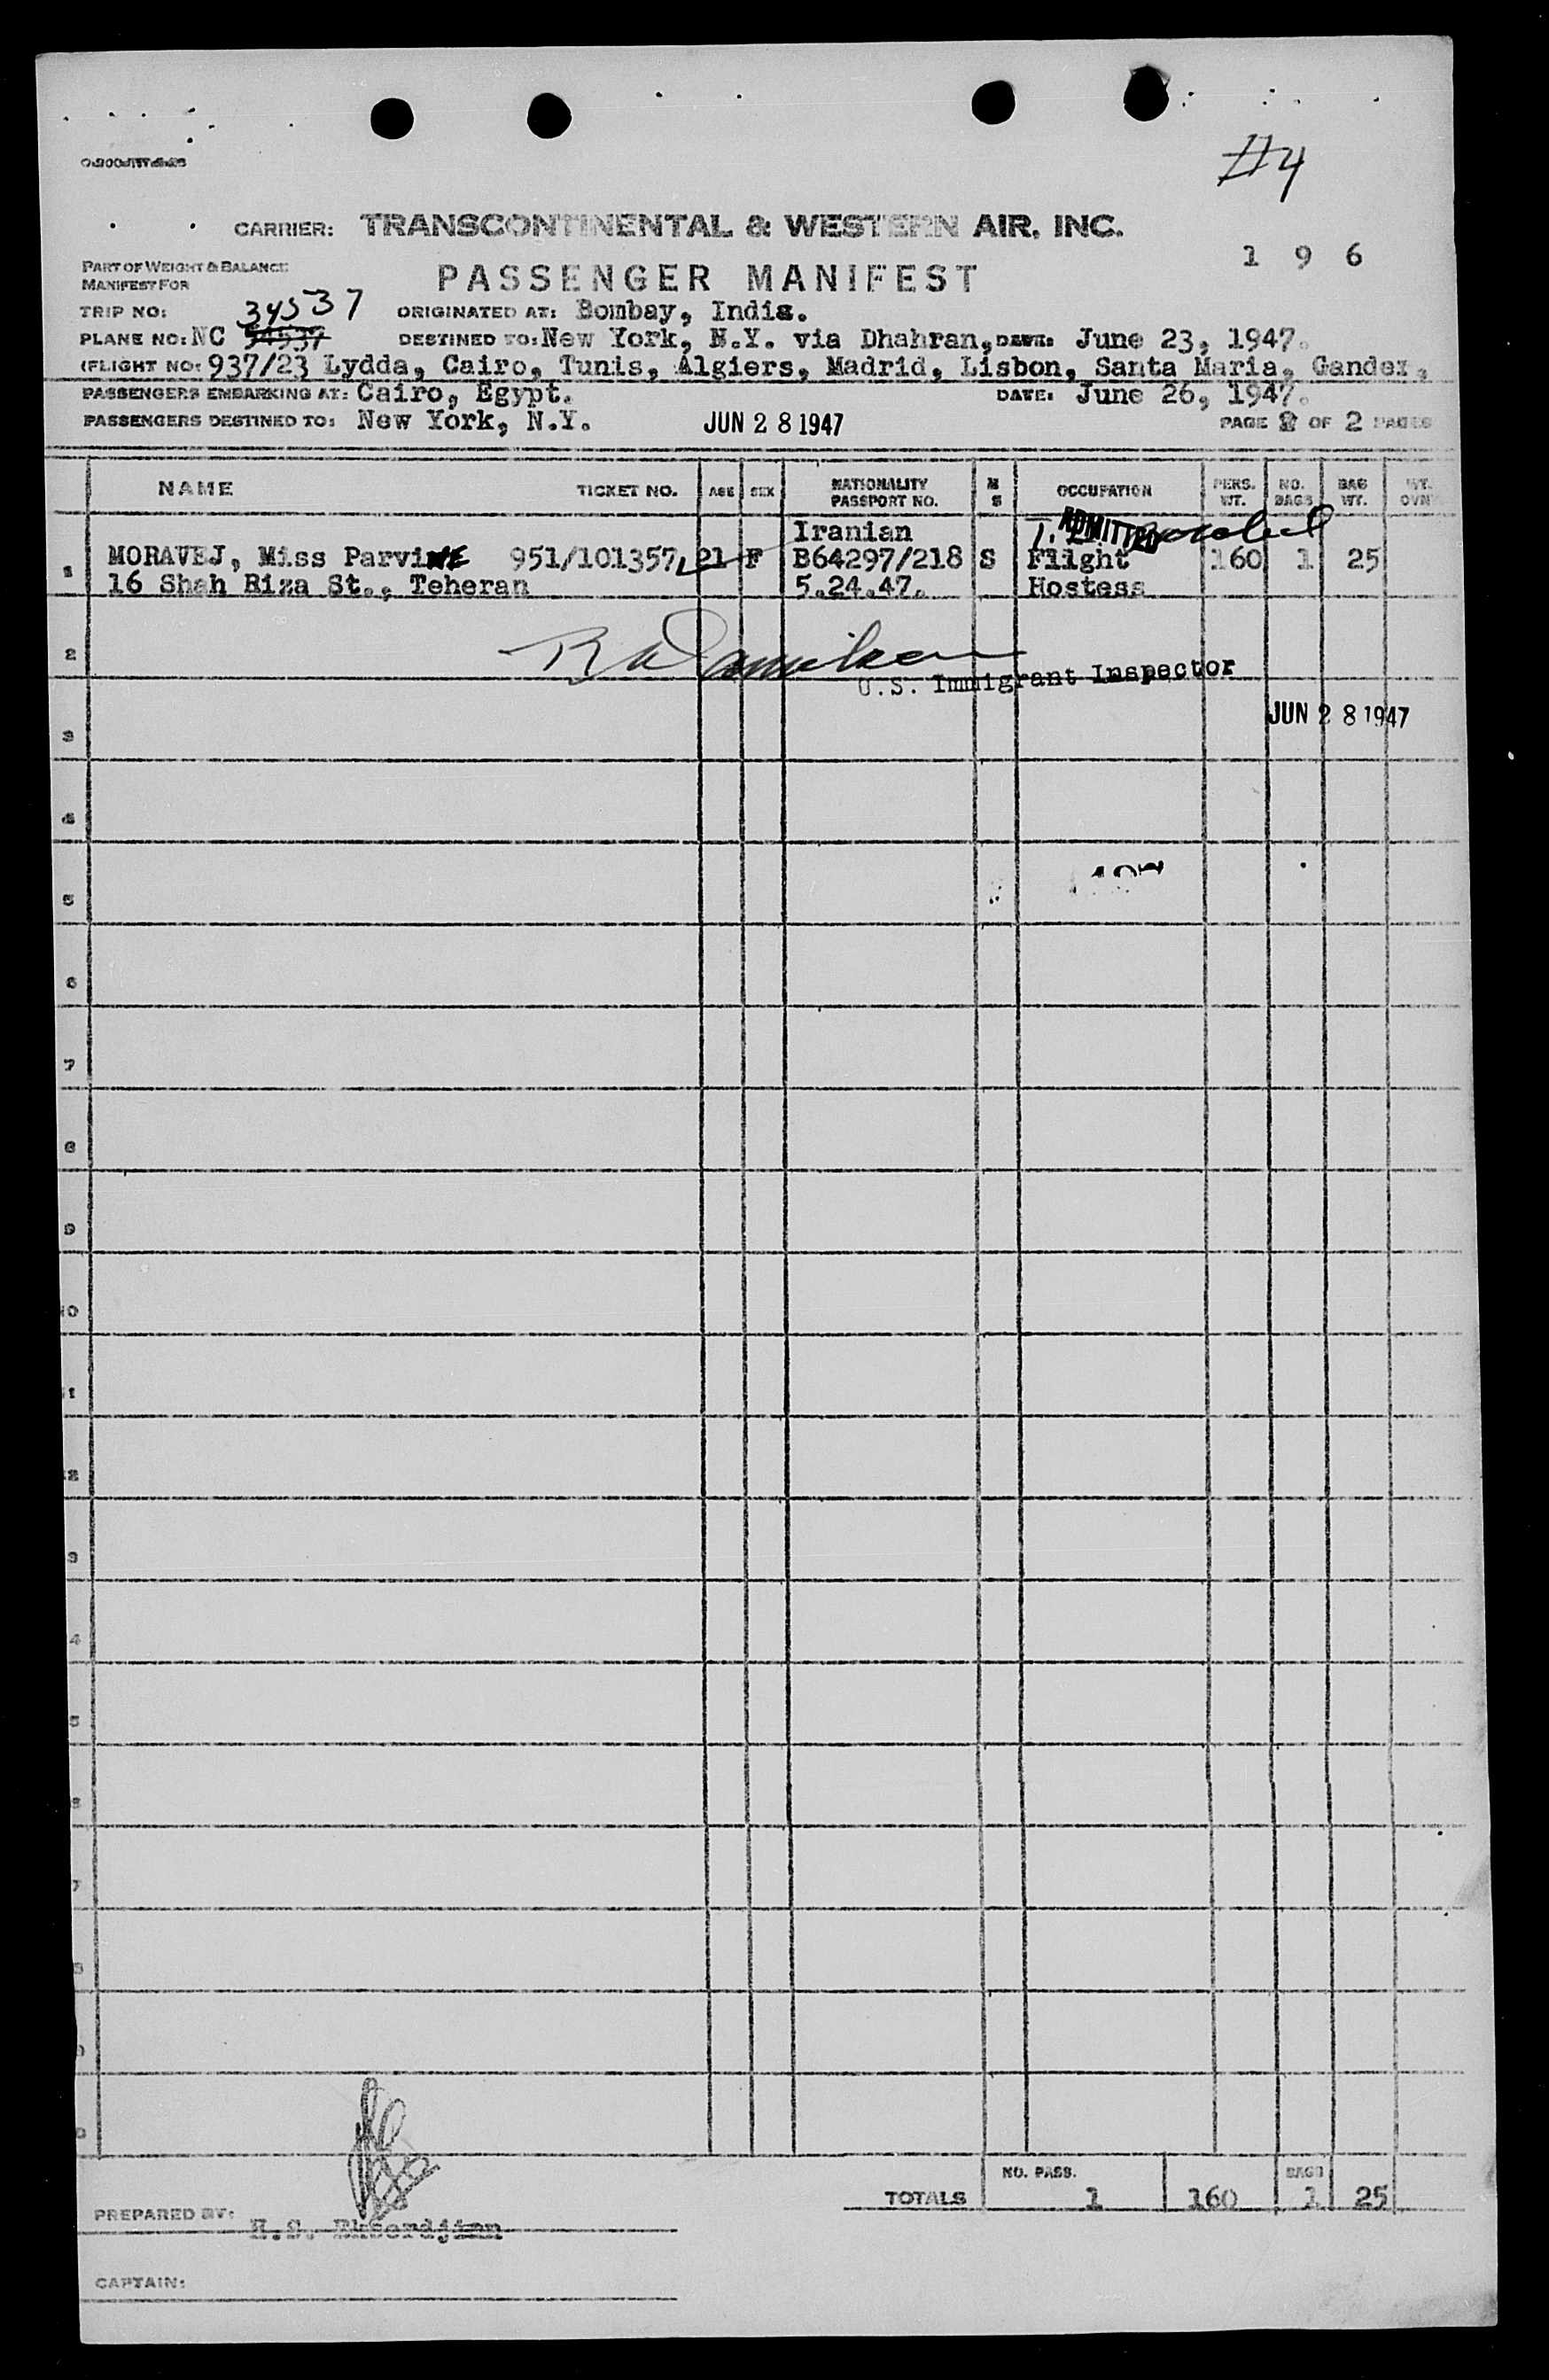 #4
CARRIER: TRANSCONTINENTAL & WESTERN AIR, INC.
1 9 6
PART OF WEIGHT & BALANCE
MANIFEST FOR
PASSENGER MANIFEST
TRIP NO: 34537 ORIGINATED AT: Bombay, India.
PLANE NO: NC 54537 DESTINED TO: New York, N.Y. via Dhahran, DATE: June 23, 1947.
(FLIGHT NO: 937/23 Lydda, Cairo, Tunis, Algiers, Madrid, Lisbon, Santa Maria, Gander,
PASSENGERS EMBARKING AT: Cairo, Egypt. DATE: June 26, 1947.
PASSENGERS DESTINED TO: New York, N.Y. JUN 28 1947 PAGE 2 OF 2 PAGES
NAME TICKET NO. AGE SEX NATIONALITY PASSPORT NO. M S OCCUPATION PERS. WT. NO. BAGS BAG WT. WT.
Iranian ADMITTED
1 MORAVEJ, Miss ParviNE 951/101357 21 F B64297/218 S Flight 160 1 25
16 Shah Riza St., Teheran 5.24.47. Hostess
2
U.S. Immigrant Inspector
JUN 28 1947
3
4
5
6
7
8
9
10
11
12
13
14
15
16
17
18
19
20
NO. PASS. BAGS
TOTALS 1 160 1 25
PREPARED BY: H.S.
CAPTAIN: